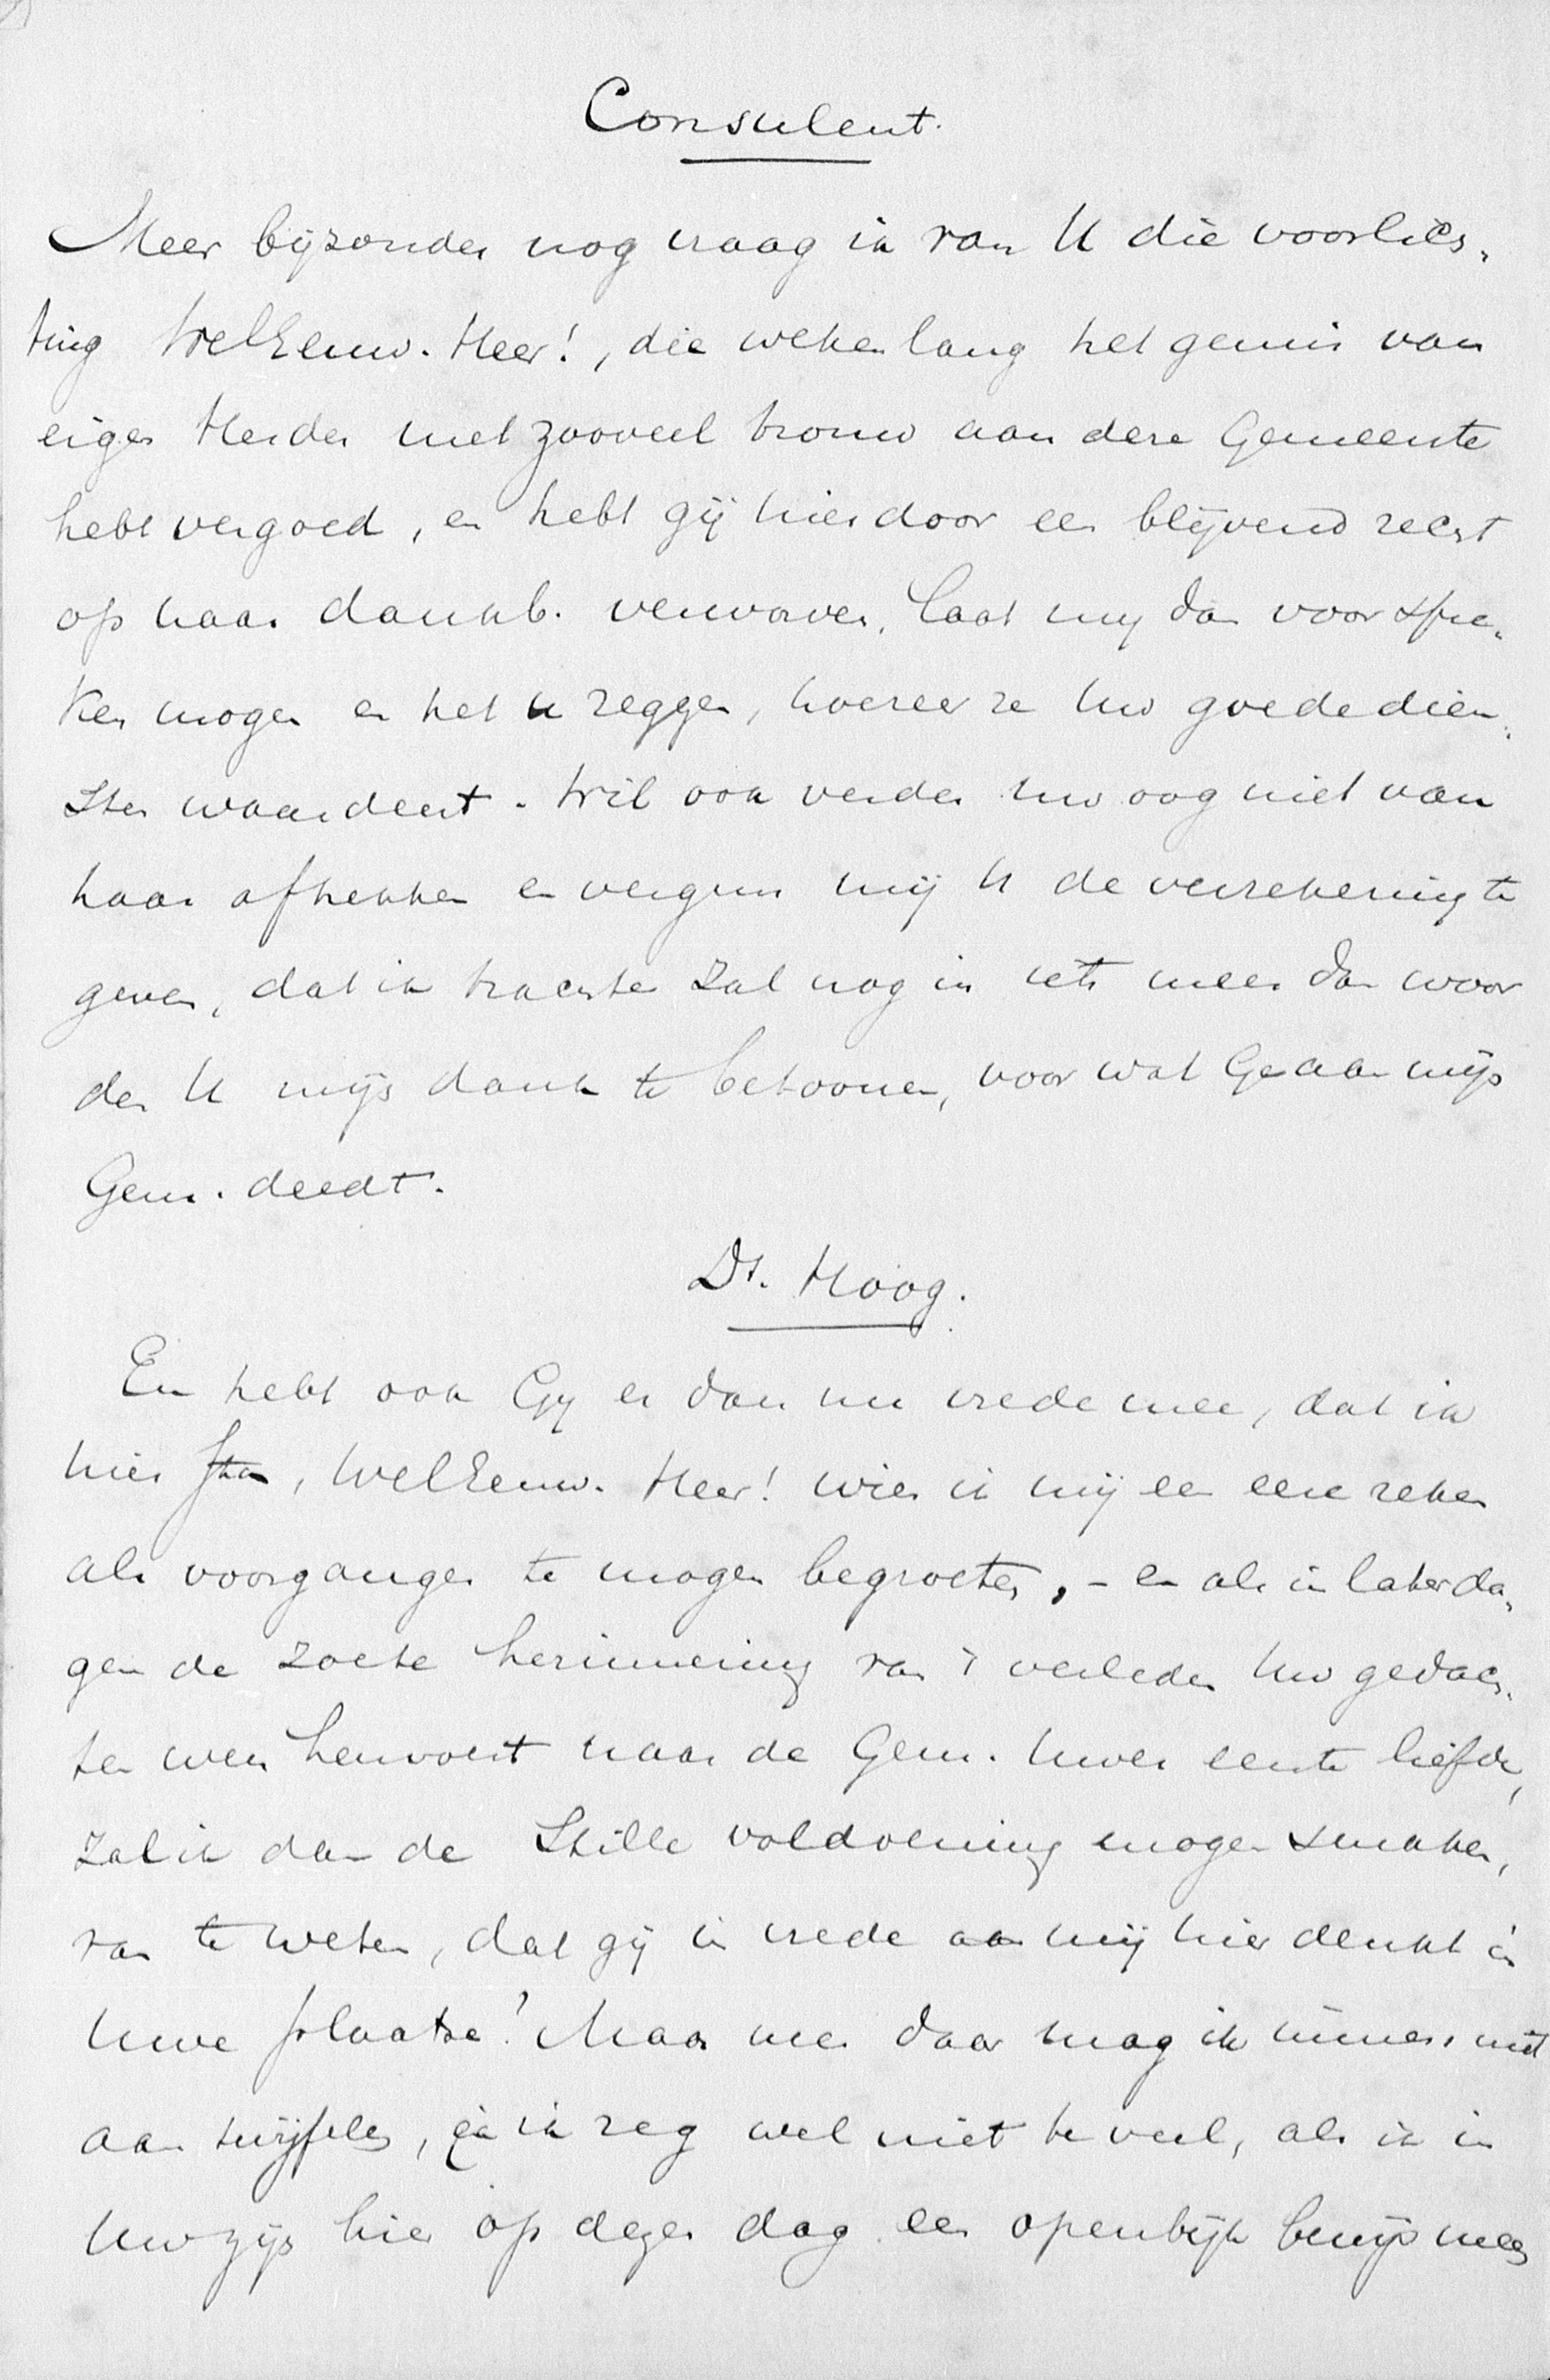 Consulent.
Meer bijzonder nog vraag ik van U die voorlich-
ting WelEerw. Heer!, die weken lang het gemis van
eigen Herder met zooveel trouw aan deze Gemeente
hebt vergoed, en hebt gij hierdoor een blijvend recht
op haar dankb. verworven, laat mij dan voor spre-
ken mogen en het u zeggen, hoezeer ze Uw goede dien-
sten waardeert. Wil ook verder Uw oog niet van
haar aftrekken en vergun mij U de verzekering te
geven, dat ik trachten zal nog in iets meer dan woor
den U mijn dank te betoonen, voor wat Ge aan mijn
Gem. deedt.
Ds. Hoog.
En hebt ook Gij er dan nu vrede mee, dat ik
hier sta, WelEerw. Heer! wien ik mij een eere reken
als voorganger te mogen begroeten, - en als in later da-
gen de zoete herinnering van 't verleden Uw gedach-
ten weer henvoert naar de Gem. Uwer eerste liefde,
zal ik dan de stille voldoening mogen smaken,
van te weten, dat gij in vrede aan mij hier denkt in
Uwe plaatse? Maar nee daar mag ik immers niet
aan twijfelen, ja ik zeg wel niet te veel, als ik in
Uw zijn hier op dezen dag een openlijk bewijs meen